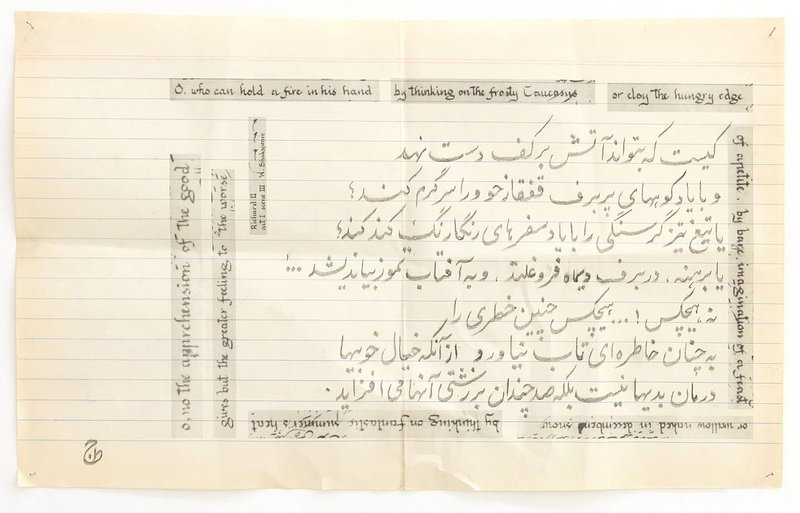 O, who can hold a fire in his hand
by thinking on the frosty Caucasus
or cloy the hungry edge
of apetite, by bare imagination of a feast
or wallow naked in december snow
by thinking on fantastic summer's heat
o, no the apprehension of the good
gives but the greater feeling to the worse
Richard II
act I scene III W. Shakespeare
کیست که بتواند آتش بر کف دست نهد
و با یاد کوههای پر برف قفقاز خود را سرگرم کند؟
یا تیغ تیز گرسنگی را با یاد سفره های رنگارنگ کند کند؟
یا برهنه، در برف دیماه فرو غلتد، و به آفتاب تموز بیاندیشد ...!
نه هیچکس! ... هیچکس چنین خطری را
به چنان خاطره ای تاب نیاورد از آنکه خیال خوبیها
درمان بدیها نیست بلکه صد چندان بر زشتی آنها می افزاید.